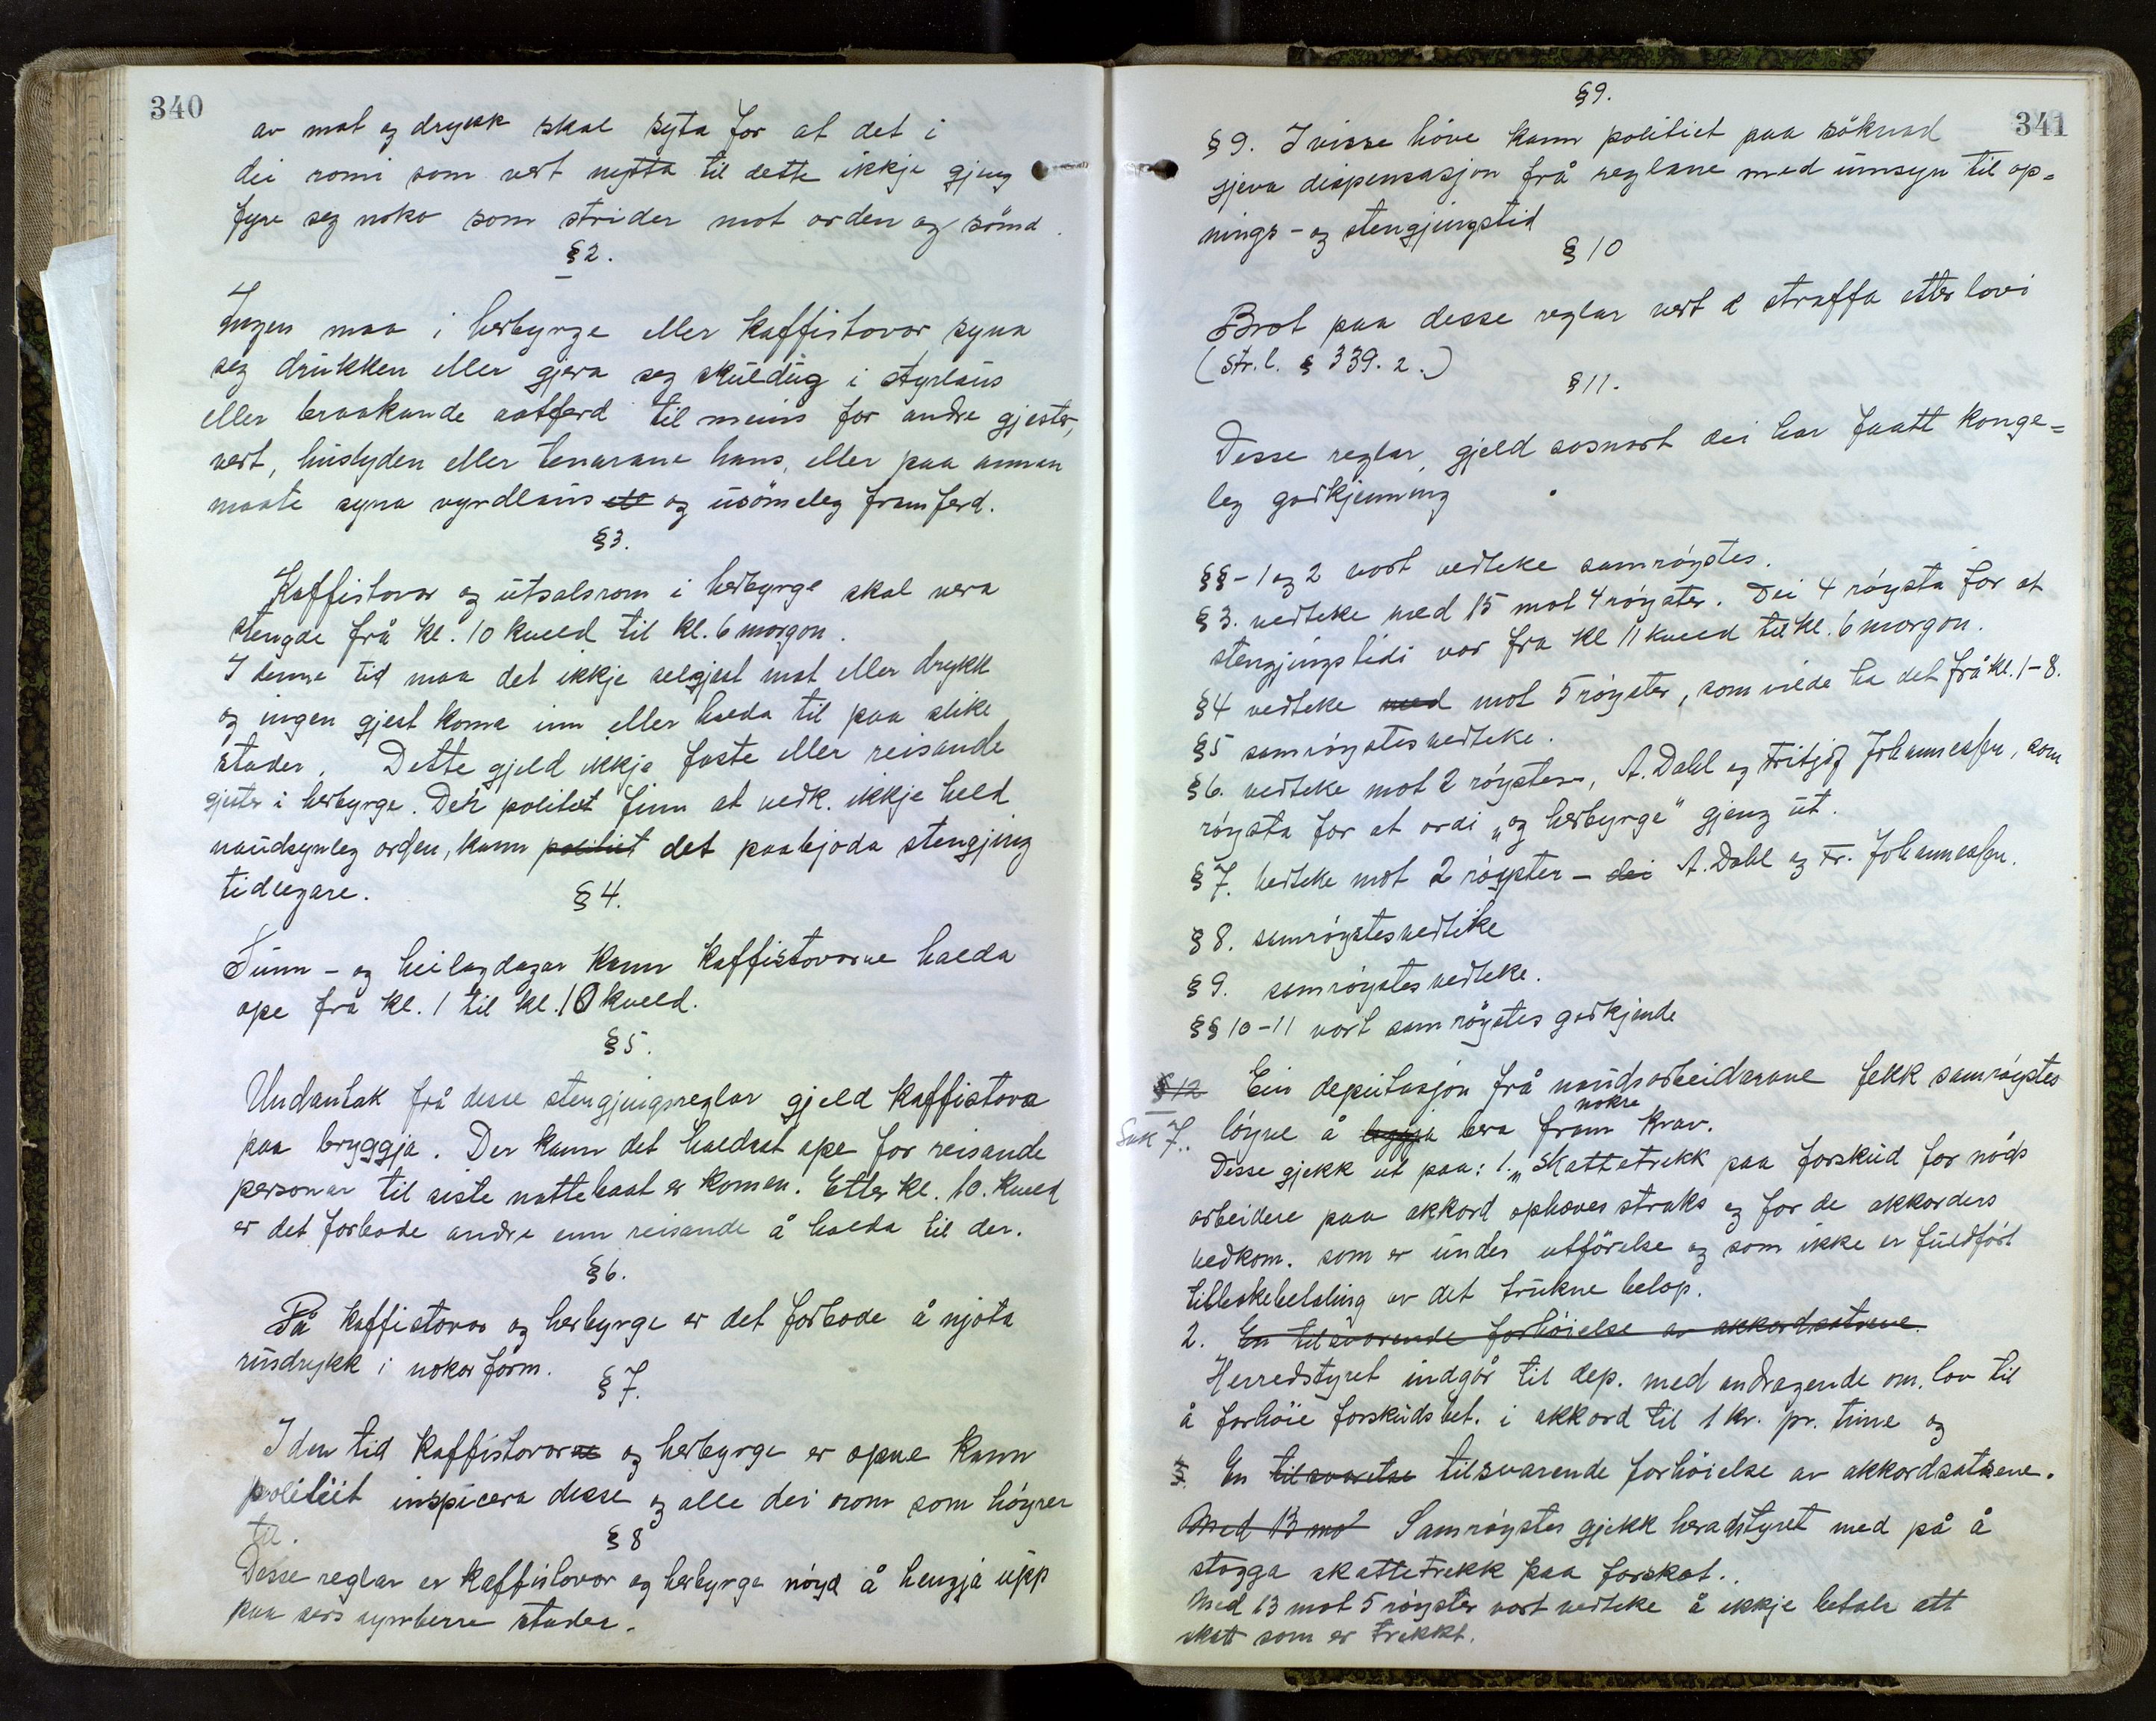 340
av mat og drykk skal syta for at det i
dei romi som vert nytta til dette ikkje gjeng
fyre seg noko som strider mot orden og sömd.
§2.
Ingen maa i herbyrge eller kaffistovor syna
seg drukken eller gjera seg skuldug i styrlaus
eller braakande aatferd til meins for andre gjester,
vert, huslyden eller tenarane hans, eller paa annan
maate syna vyrdlaus og usömeleg framferd.
§3.
Kaffistovor og utsalsrom i herbyrge skal vera
stengde frå kl. 10 kveld til kl. 6 morgon.
I denne tid maa det ikkje selgjast mat eller drykk
og ingen gjest koma inn eller halda til paa slike
stader. Dette gjeld ikkje faste eller reisande
gjester i herbyrge. Der politiet finn at vedk. ikkje held
naudsynleg orden, kann politiet det paabjoda stengjing
tidlegare.
§4.
Sunn- og heilagdagar kann kaffistovorne halda
ope frå kl. 1 til kl. 10 kveld.
§5.
Undantak frå desse stengjingsreglar gjeld kaffistova
paa bryggja. Der kann det haldast ope for reisande
personar til siste nattebaat er komen. Etter kl. 10. kveld
er det forbode andre enn reisande å halda til der.
§6.
På kaffistovor og herbyrge er det forbode å njota
rusdrykk i nokor form.
§7.
I den tid kaffistovorne og herbyrge er opne kann
politiit inspicera desse og alle dei rom som höyrer
til.
§8
Desse reglar er kaffistovor og herbyrge nöyd å hengja upp
paa vers synberre stader.
341
§9.
§9. I visse höve kann politiet paa söknad
gjeva dispensasjon frå reglane med umsyn til op=
nings- og stengjingstid
§10
Brot paa desse reglar vert straffa etter lovi
(Str.l. § 339. 2.)
§11.
Desse reglar gjeld sosnart dei har faatt konge=
leg godkjenning
§§-1 og 2 vart vedteke samröystes.
§3. vedteke med 15 mot 4 röyster. Dei 4 röysta for at
stengjingstidi var fra kl 11 kveld til kl. 6 morgon.
§4 vedteke med mot 5 röyster, som vilde ha det frå kl. 1-8.
§5 samröystesvedteke.
§6. vedteke mot 2 röyster, A. Dahl og Fritjof Johannessen, som
röysta for at ordi „og herbyrge" gjeng ut.
§7. vedteke mot 2 röyster - dei A. Dahl og Fr. Johannessen.
§8. samröystesvedteke
§9. samröystesvedteke.
§§10-11 vart samröystes godkjende
§12 Ein deputasjon frå naudsarbeidarane fekk samröystes
Sak 7. löyve å leggja bera fram nokre krav.
Disse gjekk ut paa: 1. „Skattetrekk paa forskud for nöds
arbeidere paa akkord ophæves straks og for de akkorders
vedkom. som er under utförelse og som ikke er fuldfört
tilbakebetaling av det trukne belöp.
2. En tilsvarende forhöielse av akkordsatsene.
Herredstyret indgår til dep. med andragende om lov til
å forhöie forskudsbet. i akkord til 1 kr. pr. time og
3. En tilsvarelse tilsvarende forhöielse av akkordsatsene.
Med 13 mot Samröystes gjekk heradstyret med på å
stogga skattetrekk paa forskot.
Med 13 mot 5 röyster vart vedteke å ikkje betale att
skatt som er trekkt.